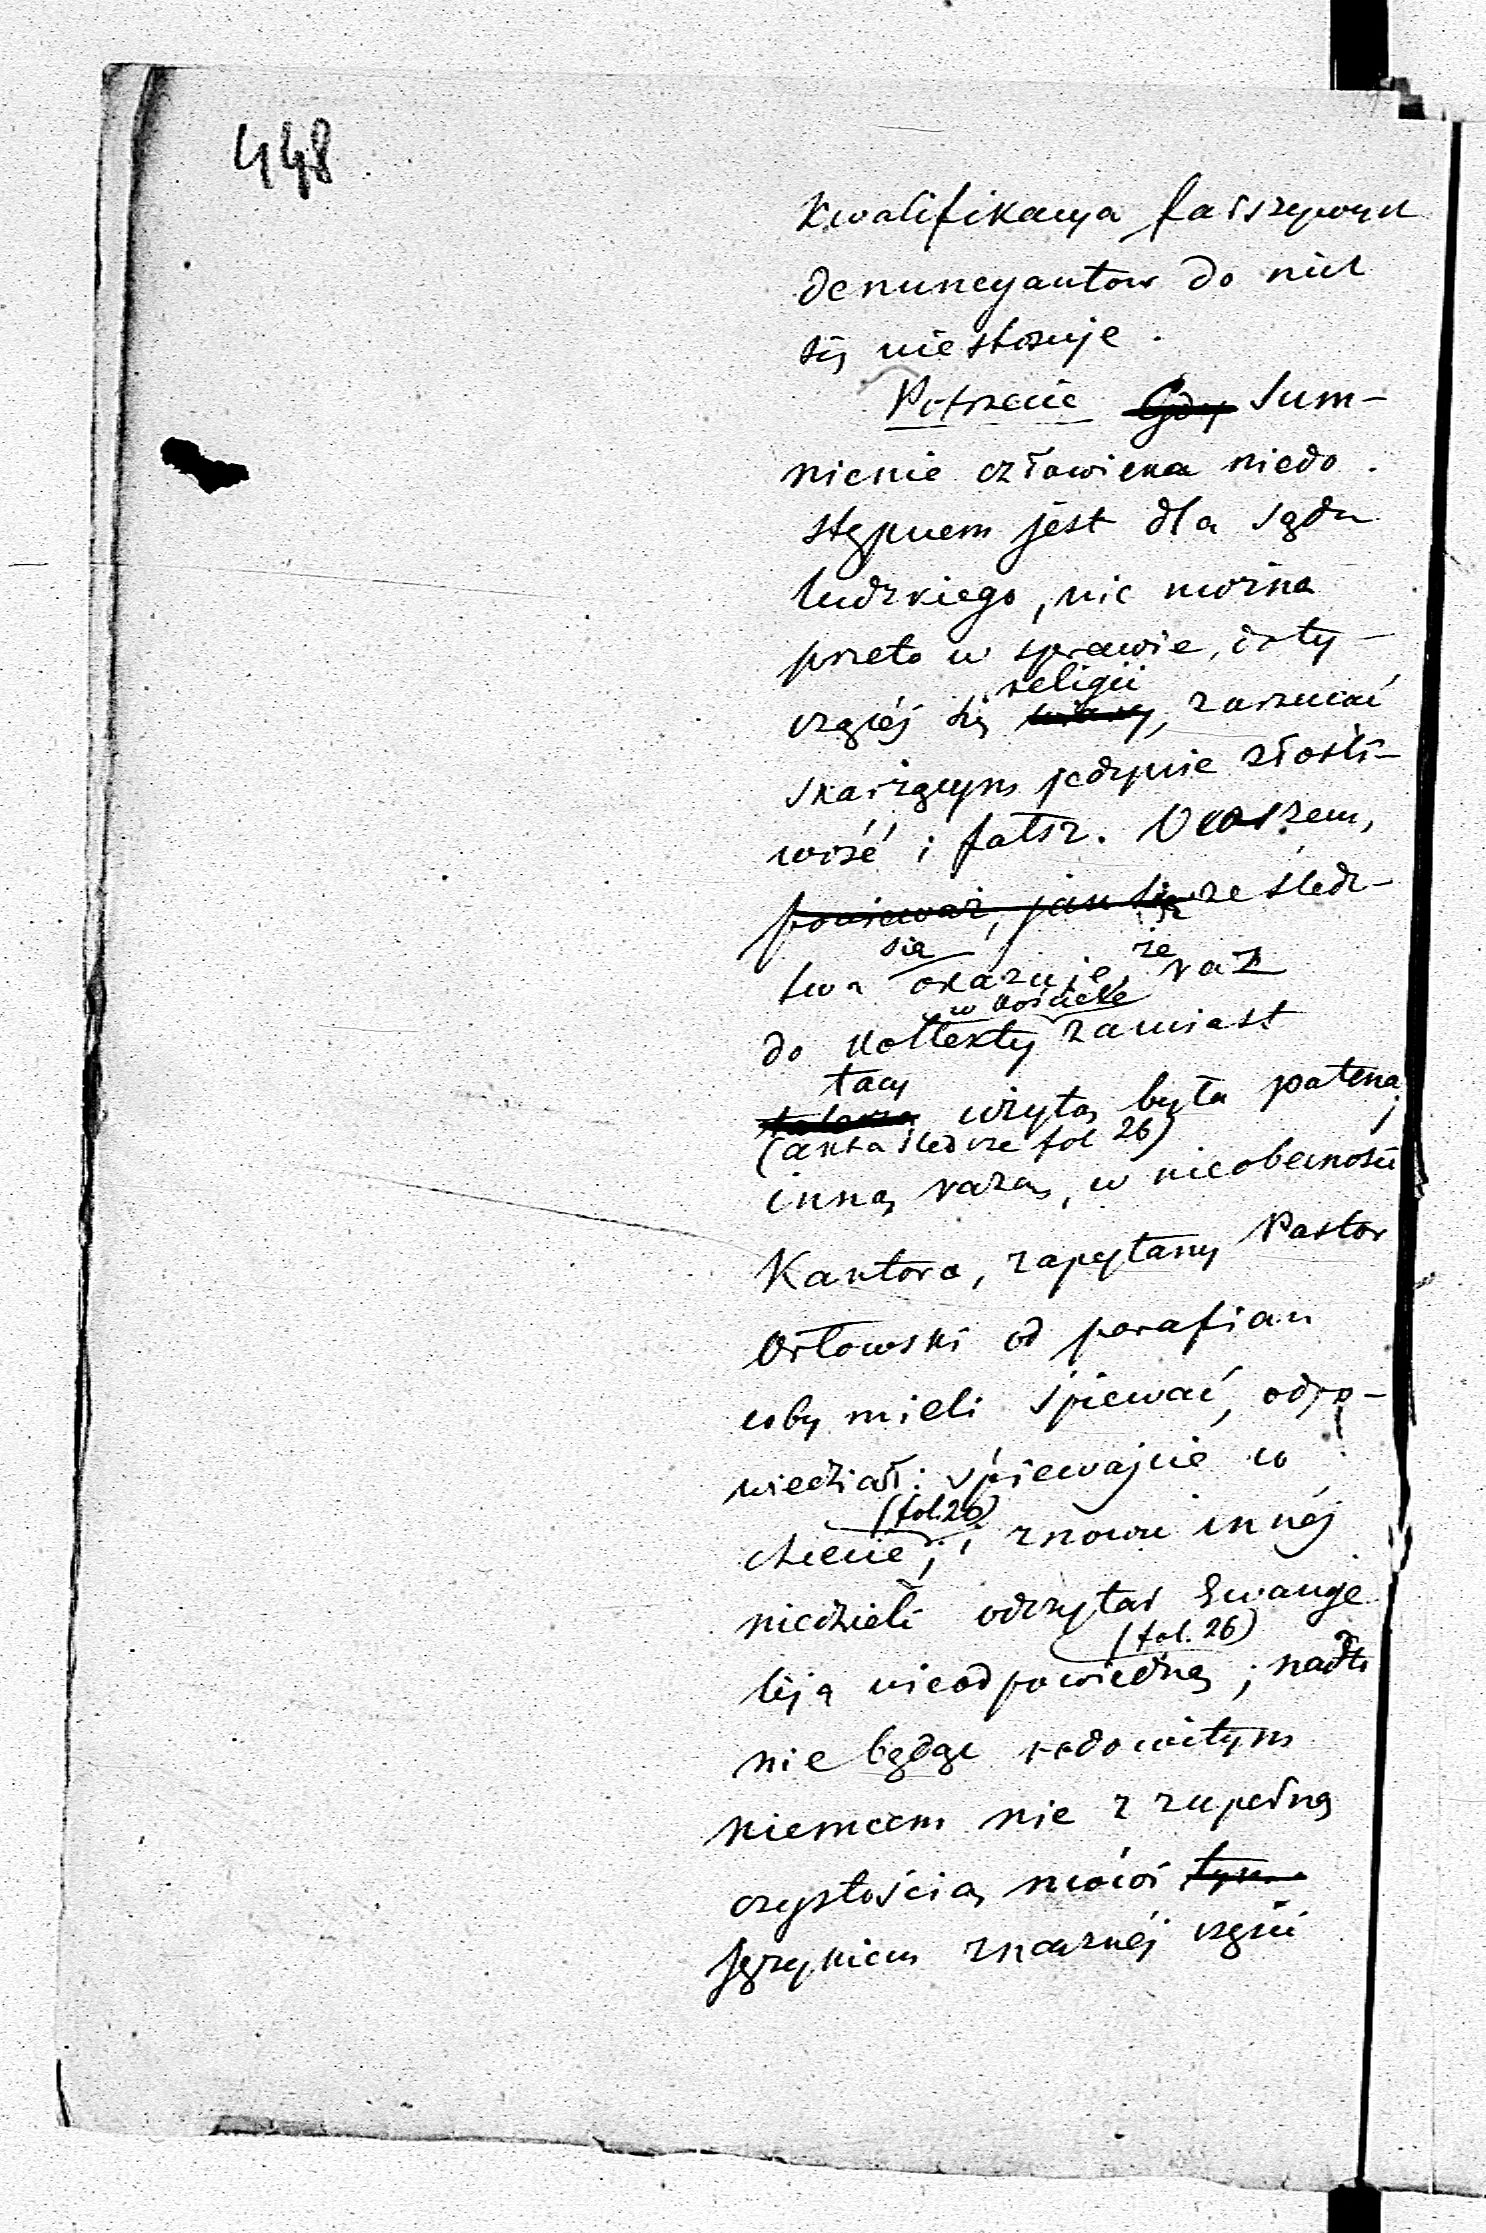 448
Kwalifikacya fałszywych
denuncyantów do nich
się niestosuje.
Potrzecie Gdy Sum-
nienie człowieka niedo-
stępnem jest dla sądu
ludzkiego, nie można
przeto w sprawie, doty-
religii
czącéj się wiary, zarzucać
skarżącym jedynie złośli-
wość i fałsz. Owszem,
ponieważ, jak się ze śledz-
się że
twa okazuje, raz
w kościele
do kollekty zamiast
tacy
talerza użytą była patena;
(akta śledcze fol 26)
inną razą, w nieobecności
Kantora, zapytany Pastor
Orłowski od parafian
coby mieli śpiewać, odpo-
wiedział: śpiewajcie co
(fol. 26)
chcecie; i znowu innéj
niedzieli odczytał Ewange
(fol. 26)
liją nieodpowiednią; nadto
nie będąc rodowitym
niemcem nie z zupełną
czystością mówi
językiem znacznéj części